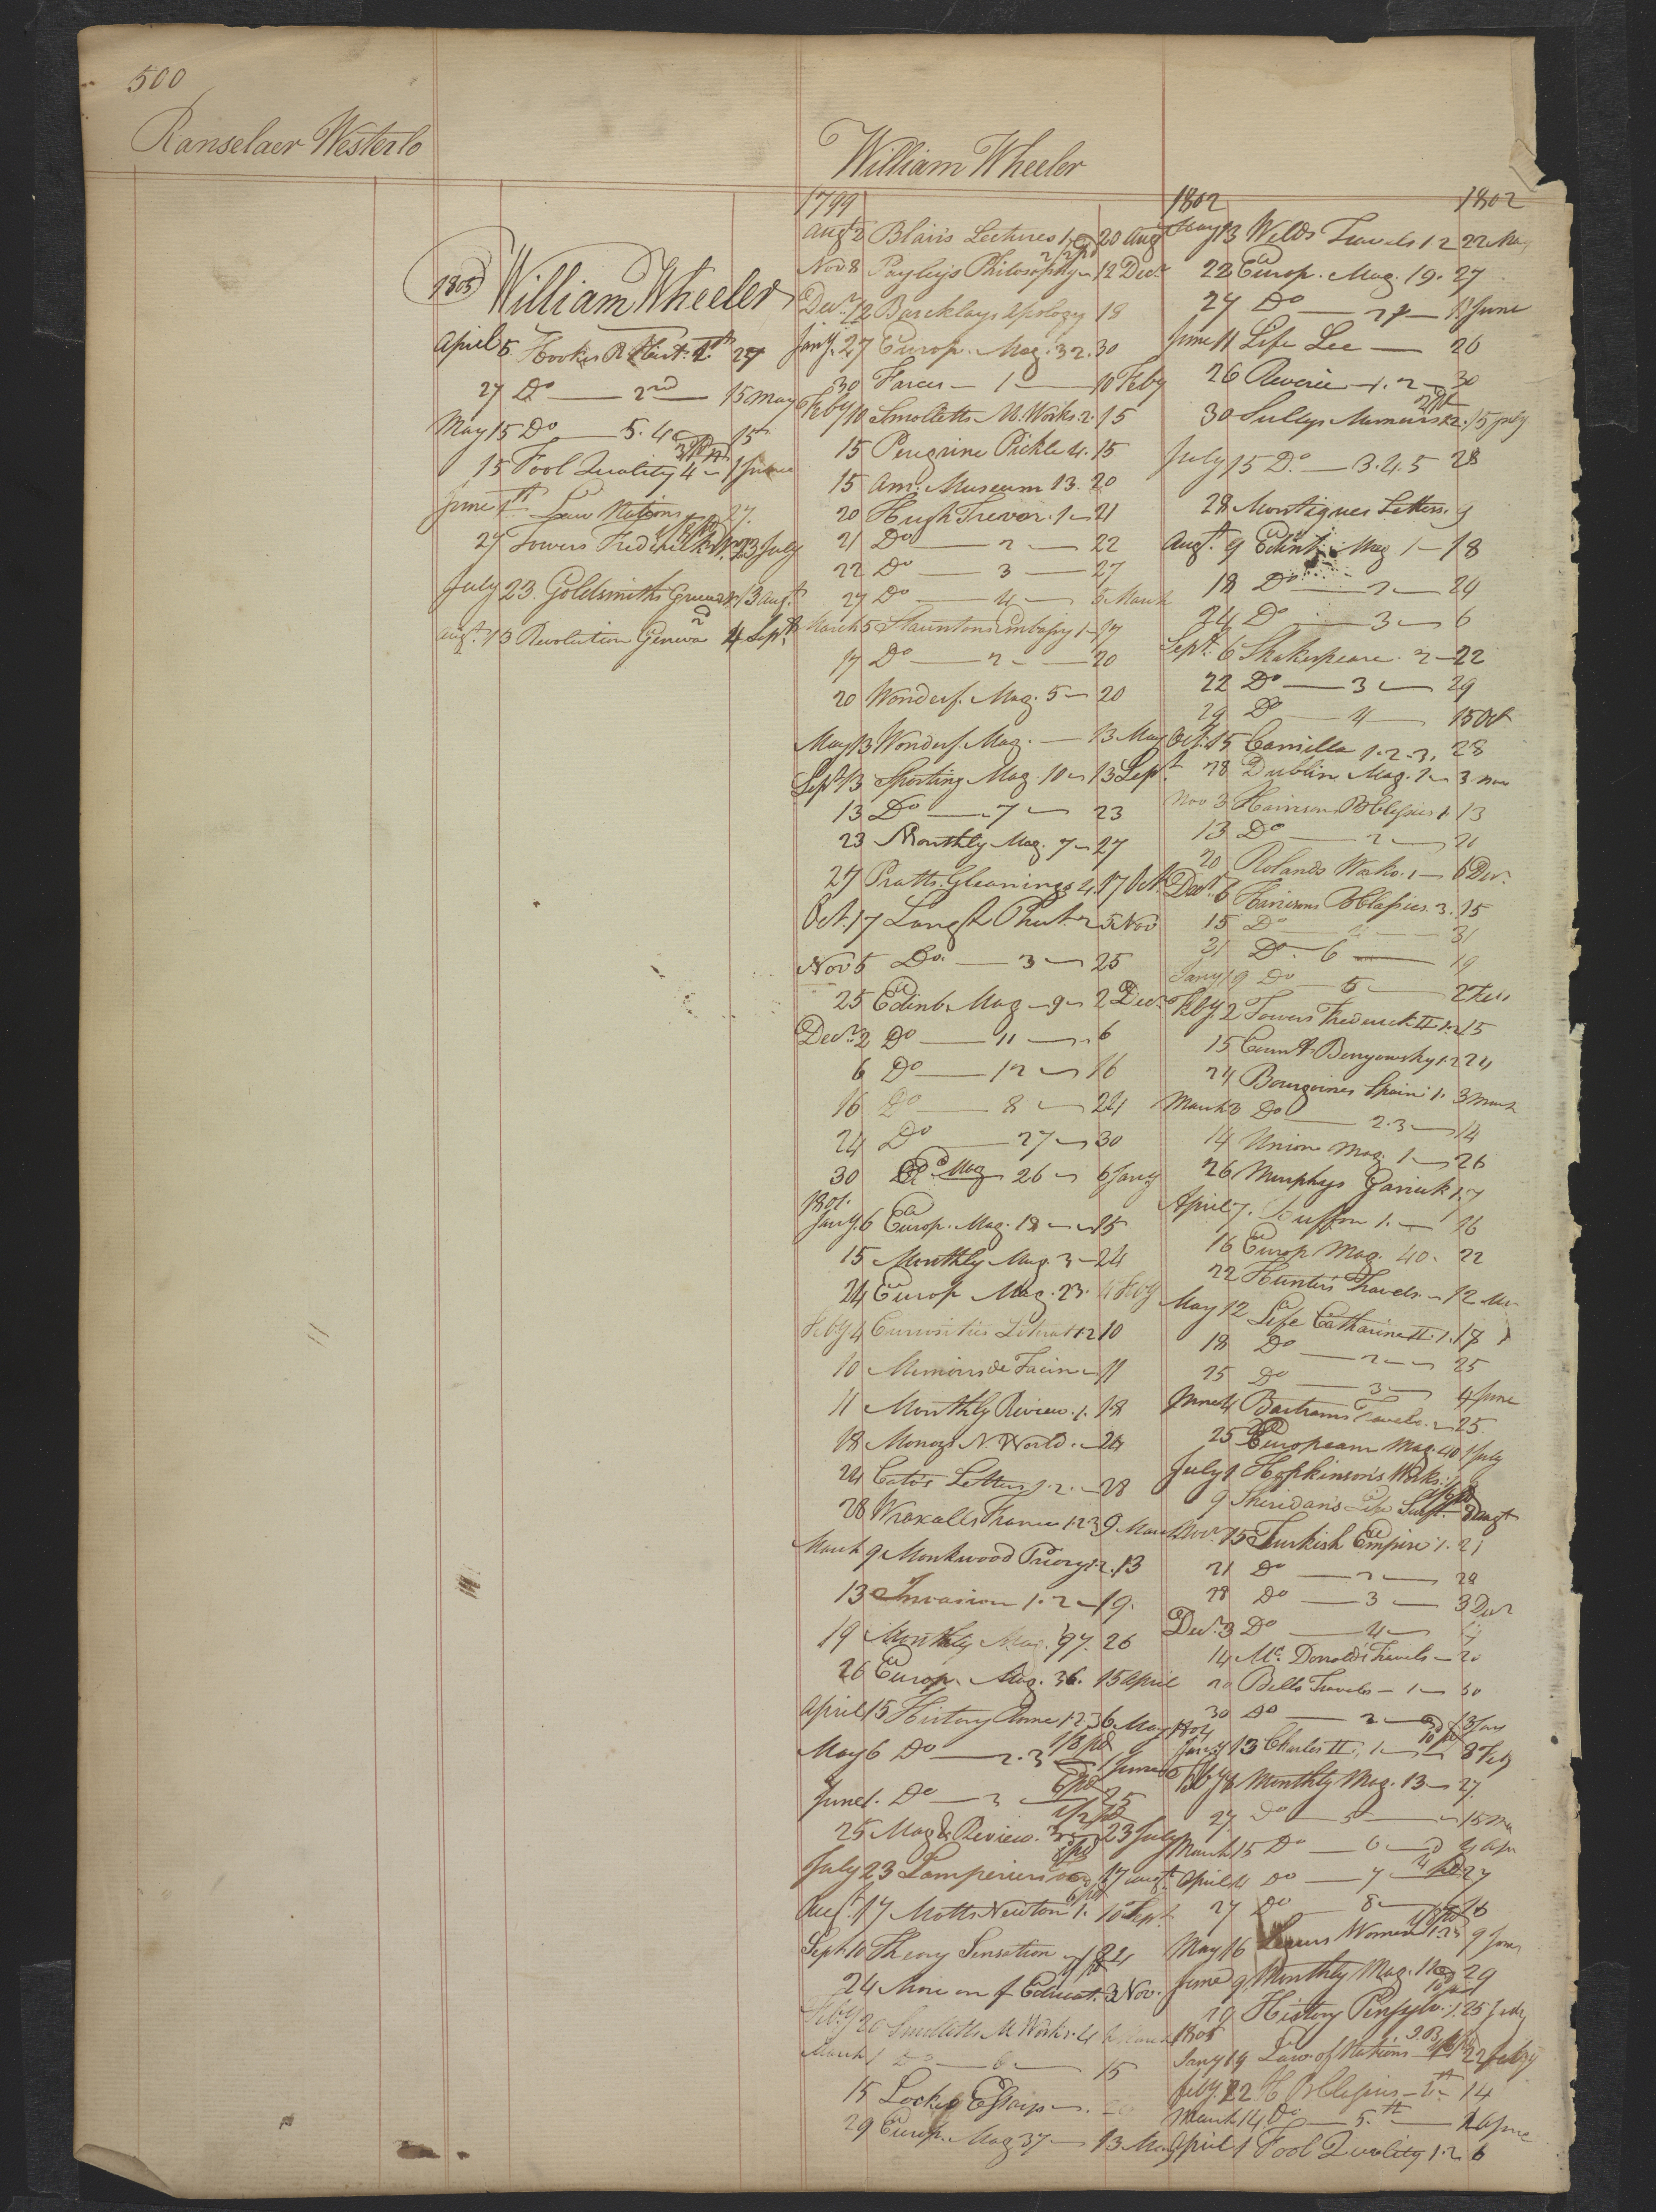 500
Ranselaer Westerlo
1805 William Wheeler
April 5 Hookes R. Hist. 1st 27
27 Do — 2nd — 15 May
May 15 Do — 5. 4 15
15 Fool Quality 4 — 1 June
June 1st Law Nations 27.
27 Towers Frederick 23 July
July 23. Goldsmiths Greece 13 Augt
Augt 13 Revolution Geneva 2d 4 Sept
William Wheeler
1799
Augt 2 Blairs Lectures 1. 20 Aug
Nov 8 Payleys Philosophy — 12 Decr
Decr 12 Barcklays Apology 18
Jany. 27 Europ. Mag. 32. 30
30 Farces — 1 — 10 Feby
Feby 10 Smolletts M. Works. 2. 15
15 Peregrine Pickle 4. 15
15 Am: Museum 13. 20
20 Hugh Trevor. 1 — 21
21 Do — 2 — 22
22 Do — 3 — 27
27 Do — 4 — 5 March
March 5 Stauntons Embassy 1 — 17
17 Do — 2 — 20
20 Wonderf. Mag. 5 — 20
May 13 Wonderf. Mag. — 13 May
Sept 13 Sporting Mag. 10 — 13 Sept
13 Do — 7 — 23
23 Monthly Mag. 7 — 27
27 Pratts. Gleanings 4. 17 Oct
Oct. 17 Langh Plut. 2 5 Nov
Nov 5 Do. — 3 — 25
25 Edinb. Mag — 9 — 2 Decr
Decr. 2 Do — 11 — 6
6 Do — 12 — 16
16 Do — 8 — 24
24 Do — 27 — 30
30 Do Mag 26 — 6 Jany
1801.
Jany. 6 Europ. Mag. 18 — 15
15 Monthly Mag. 3 — 24
24 Europ Mag. 23. 4 Feby
Feby 4 Curiosities Literat 1.2 10
10 Memoirs de — 11
11 Monthly Review. 1. 18
18 Monroes N. World. — 24
24 Cato's Letters 1. 2. — 28
28 Wraxalls France 1.2.3 9 March
March 9 Monkwood Priory 1.2. 13
13 Invasion 1. 2 — 19.
19 Monthly Mag. '97. 26
26 Europ. Mag. 36. 15 April
April 15 History Rome 1.2.3 6 May
May 6 Do — 2. 3 1/6 pd 1 June
June 1. Do — 3 — 6 pd 25
25 Mag & Review. 3 — 1/2 pd 23 July
July 23 Lamperiers 17 augt
Aug. 17 Motts Newton 1. 10 Sept
Sept 10 Theory Sensation — 24
24 More on f Educat. 3 Nov.
Feby 20 Smolletts M Works. 4 March
March 1 Do — 6 — 15
15 Lockes Essays —
29 Europ. Mag 37 — 13 May
1802 1802
May 13 Welds Travels 1 2 22 May
22 Europ. Mag. 19. 27
27 Do — 11 June
June 11 Life Lee — 26
26 Reverie — 1. 2 — 30
30 Sullys Memoirs 1.2. 15 july
July 15 Do. — 3. 4. 5 28
28 Montigues Letters. 9
Augt. 9 Edinb. Mag 1 — 18
18 Do — 2 — 24
24 Do — 3 — 6
Sept. 6 Shakespeare. 2 — 22
22 Do — 3 — 29
29 Do — 4 — 15 Oct
Oct. 15 Camilla 1. 2. 3. 28
28 Dublin Mag. 1 — 3 nov
Nov 3 Harrison 1. 13
13 Do — 2 — 20
20 Rolands Works. 1 — 6 Decr.
Decr. 6 Harrisons 3. 15
15 Do — 4 — 31
31 Do. — 6 — 19
Jany 19 Do — 5 — 2 Feb
Feby. 2 Towers Frederick II 1.2 15
15 Count Benyowsky 1.2 24
24 Bourgoines Spain. 1. 3 March
March 3 Do — 2. 3 — 14
14 Union Mag 1 — 26
26 Murphys Garrick 1. 7
April 7. Buffon 1. — 16
16 Europ Mag. 40. 22
22 Hunters Travels. — 12 May
May 12 Life Catharine II. 1. 18
18 Do — 2 — 25
25 Do — 3 — 4 June
June 4 Bartrams Travels. — 25.
25 European Mag. 40 1 July
July 1 Hopkinson's Works. 9
9 Sheridan's Life Swift. Augt
Novr. 15 Turkish Empire 1. 21
21 Do — 2 — 28
28 Do — 3 — 3 Decr
Decr. 3 Do — 4 —
14 Mc. Donald's Travels — 20
20 Bells Travels — 1 — 30
30 Do — 2 — 13 Jany
1804
Jany 13 Charles II. 1 — 8 Feb
Feby 8 Monthly Mag. 13 — 27.
27 Do — 5 — 15 Ma
March 15 Do — 6 — 4 Apr
April 4 Do — 7 — 27
27 Do — 8 — 16
May 16 Women 1.2.3 9 June
June 9. Monthly Mag. 29
29 History Pensylv. 1. 25 July
1805
Jany 19 Law of Nations 22 Feby
Feby. 22 H — 14
March 14 Do — 5.th —
April 1 Fool Quality 1. 2. 6